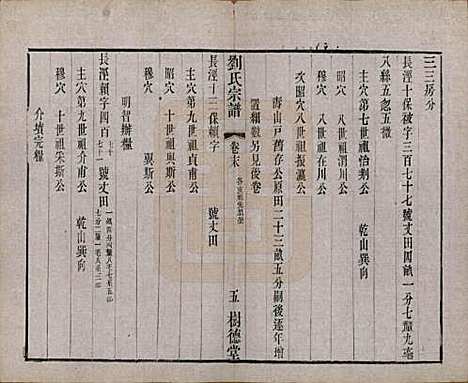 三三房分
長涇十保被字三百七十七號丈田四畝一分七釐九毫
八絲五忽五微
主穴第七世祖冶剩公　乾山巽向
昭穴　八世祖渭川公
穆穴　八世祖在川公
次昭穴八世祖振瀛公
壽山戸舊存公原田二十三畝五分嗣後逐年增
置細數另見後卷
劉氏宗譜　卷末　五　樹德堂
長涇十二保賴字　號丈田
主穴第九世祖貞甫公
昭穴　十世祖輿斯公
穆穴　輿斯公
明智辦糧
長涇賴字四百七十七十一號丈田
主穴第九世祖介甫公　乾山巽向
穆穴　十世祖朱斯公
介墳完糧